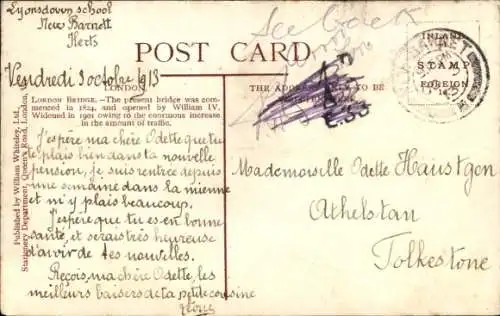 Lyonsdown school
New Barnett
Herts
POST CARD
Vendredi 3 octobre 1913
LONDON
THE ADDRESS TO BE
INLAND
STAMP
FOREIGN
LONDON BRIDGE.—The present bridge was com-
menced in 1824, and opened by William IV.
Widened in 1901 owing to the enormous increase
in the amount of traffic.
J'espère ma chère Odette que tu
te plais bien dans ta nouvelle
pension, je suis rentrée depuis
une semaine dans la mienne
et m'y plais beaucoup.
J'espère que tu es en bonne
santé, et serais très heureuse
d'avoir de tes nouvelles.
Reçois, ma chère Odette, les
meilleurs baisers de ta petite cousine
Mademoiselle Odette Haustgen
Athelstan
Folkestone
Published by William Whiteley, Ltd.
Stationery Department, Queen's Road, London.